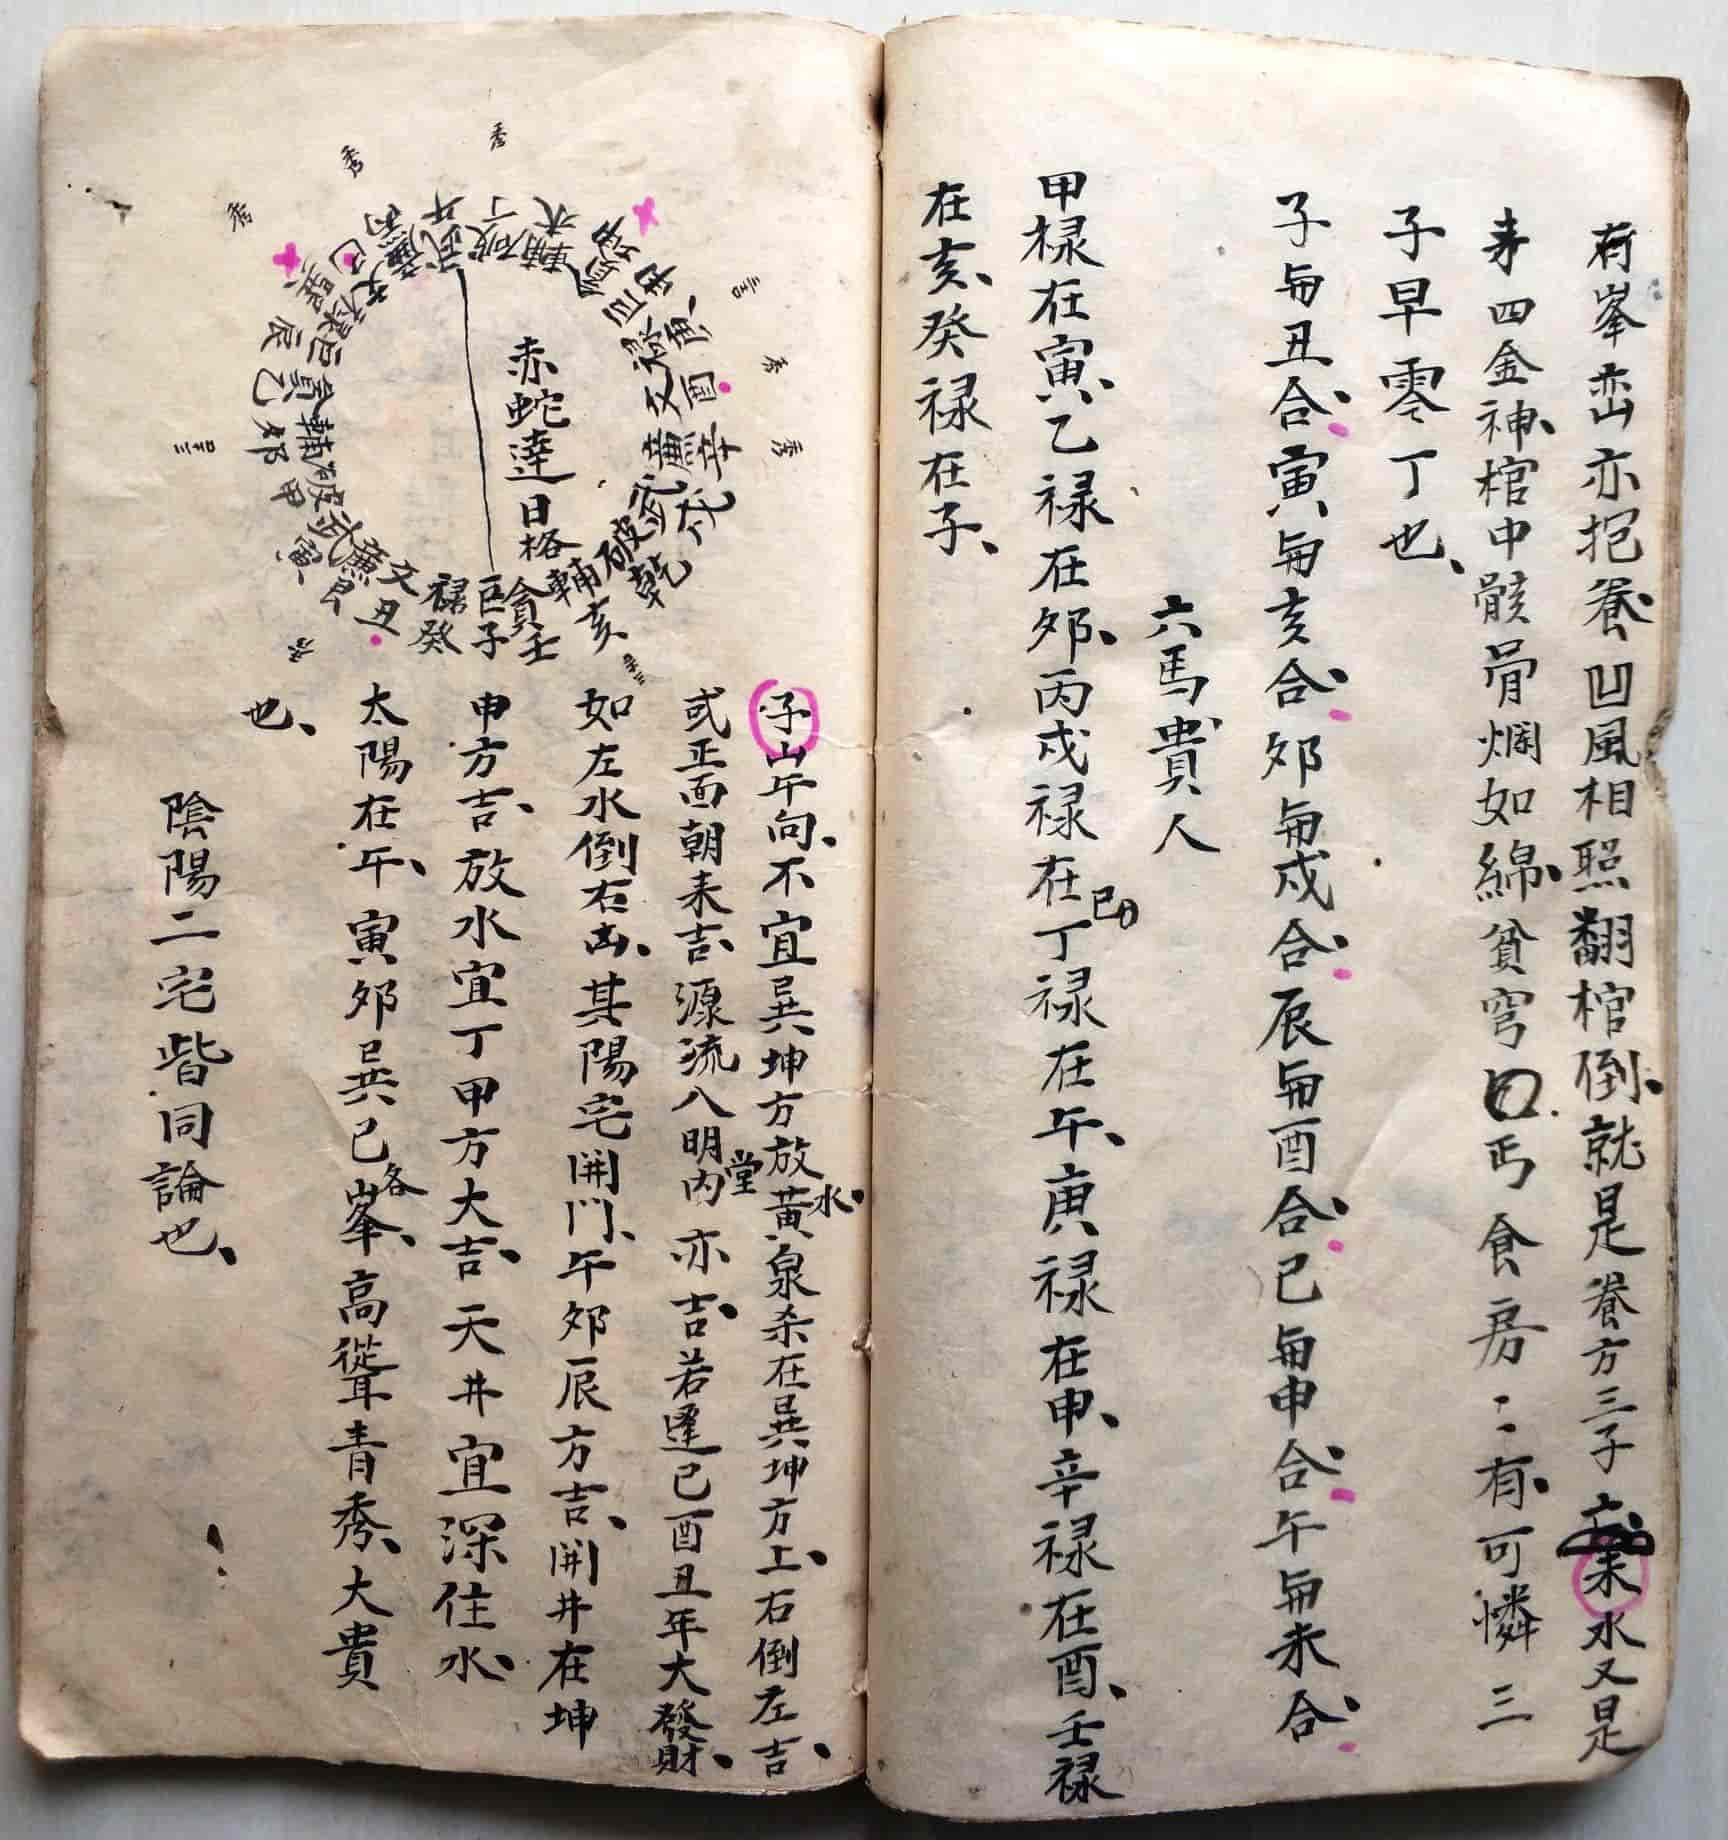 有峯巒亦抱養凹風相照翻棺倒就是養方三子未水又是
来四金神棺中骸骨爛如綿貧穹丐食房有可憐三
子早零丁也
子與丑合寅與亥合夘與戍合辰與酉合巳與申合午與未合
六馬貴人
甲禄在寅乙禄在夘丙戍禄在巳丁禄在午庚禄在申辛禄在酉壬禄
在亥癸禄在子
赤蛇達日格
子山午向不宜巽坤方放水黄泉杀在巽坤方上右倒左吉
或正面朝来吉源流八明堂内亦吉若逢巳酉丑年大發財
如左水倒右凶其陽宅開門午夘辰方吉開井在坤
申方吉放水宜丁甲方大吉天井宜深住水
太陽在午寅夘巽巳各峯高聳青秀大貴
也
陰陽二宅皆同論也
秀
秀
秀
秀
秀
吉
吉
子
癸
丑
艮
寅
甲
夘
乙
辰
巽
巳
丙
午
丁
坤
申
庚
酉
辛
戍
乾
亥
壬
巨
禄
文
廉
武
破
輔
貪